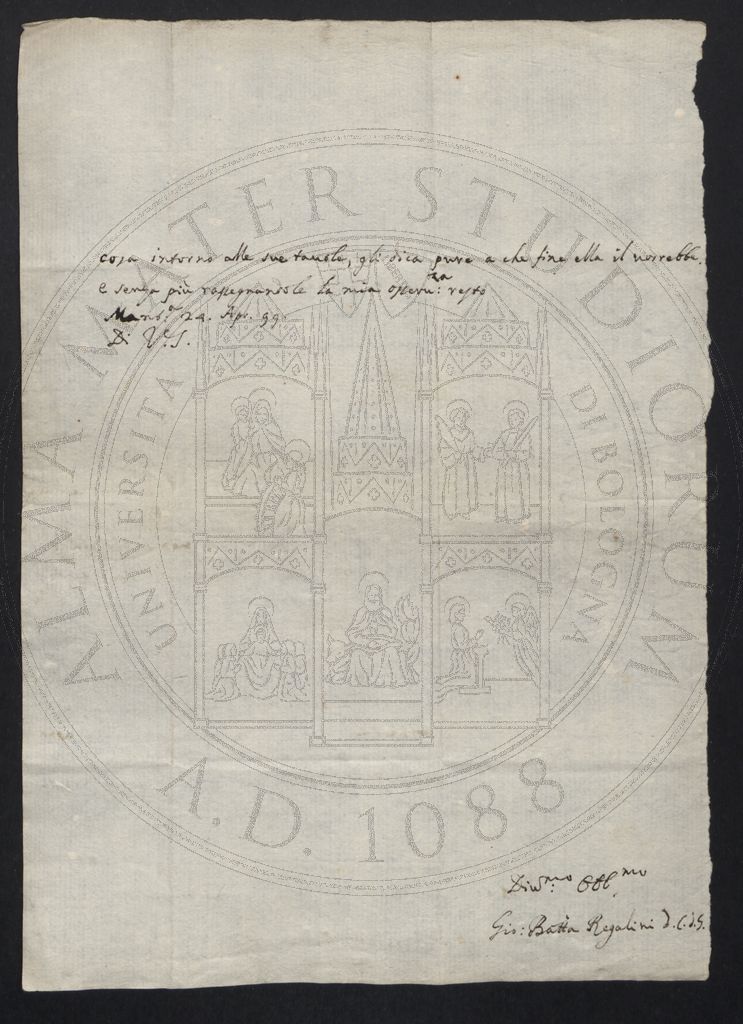 cosa intorno alle sue tauole, gli dica pure a che fine ella il uorrebbe,
e senza più rassegnandole la mia osseru:za resto
Mant.a 24. Apr. 99.
Di V.S.
Diu.mo Obl.mo
Gio: Batta Regalini d.C.d.G.
ALMA MATER STUDIORUM
UNIVERSITA DI BOLOGNA
A.D. 1088